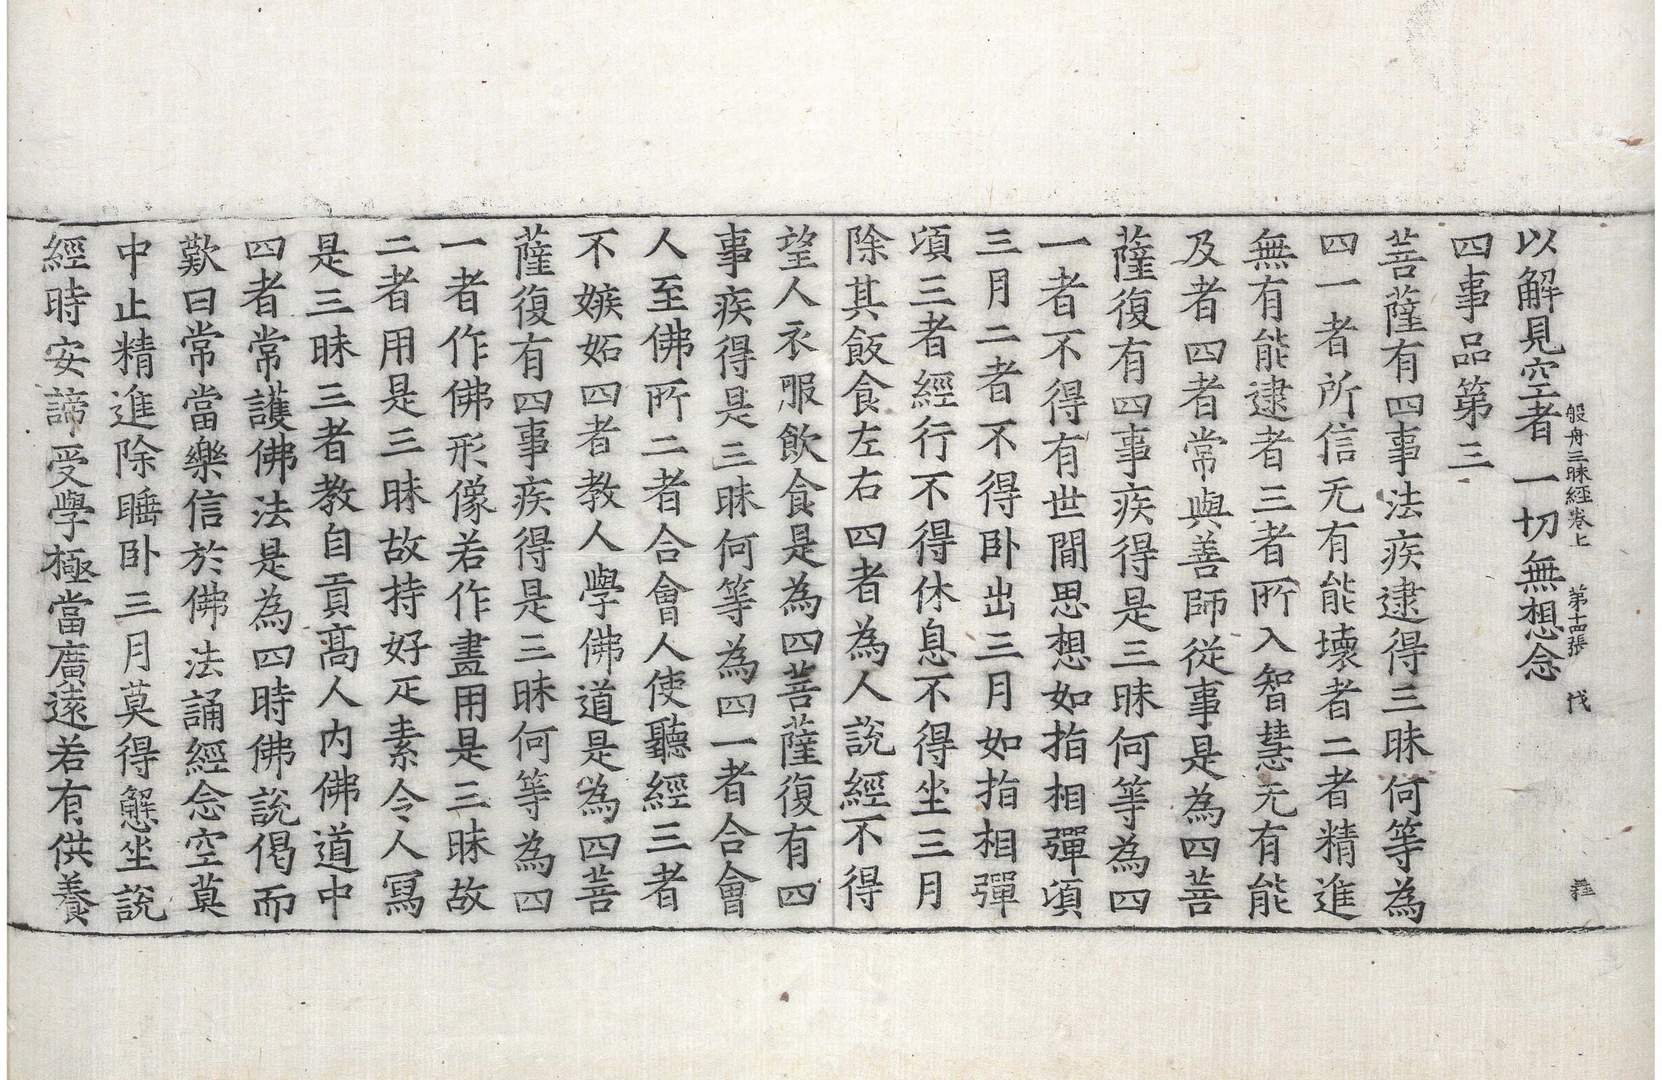 般舟三昧經卷上　第十四張　伐
以解見空者一切無想念
四事品第三
菩薩有四事法疾逮得三昧何等為
四一者所信无有能壞者二者精進
無有能逮者三者所入智慧无有能
及者四者常與善師從事是為四菩
薩復有四事疾得是三昧何等為四
一者不得有世間思想如指相彈頃
三月二者不得卧出三月如指相彈
頃三者經行不得休息不得坐三月
除其飯食左右四者為人說經不得
望人衣服飲食是為四菩薩復有四
事疾得是三昧何等為四一者合會
人至佛所二者合會人使聽經三者
不嫉妬四者教人學佛道是為四菩
薩復有四事疾得是三昧何等為四
一者作佛形像若作畫用是三昧故
二者用是三昧故持好疋素令人寫
是三昧三者教自貢高人內佛道中
四者常護佛法是為四時佛說偈而
歎曰常當樂信於佛法誦經念空莫
中止精進除睡卧三月莫得懈坐說
經時安諦受學極當廣遠若有供養